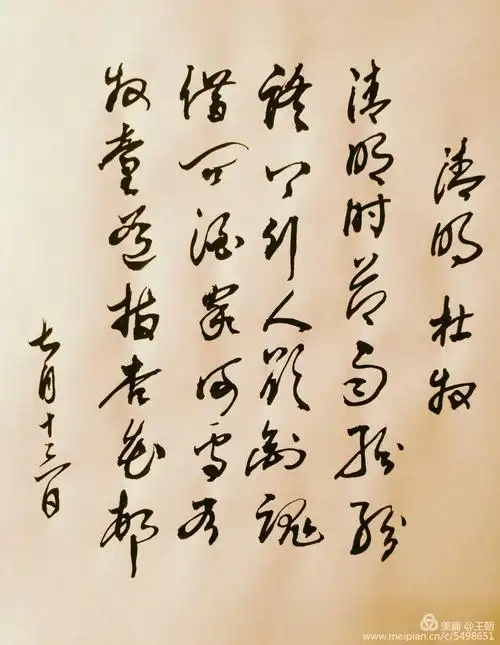 清明 杜牧
清明时节雨纷纷
路上行人欲断魂
借问酒家何处有
牧童遥指杏花邨
七月十三日
美篇 @王朝
www.meipian.cn/c/5498651